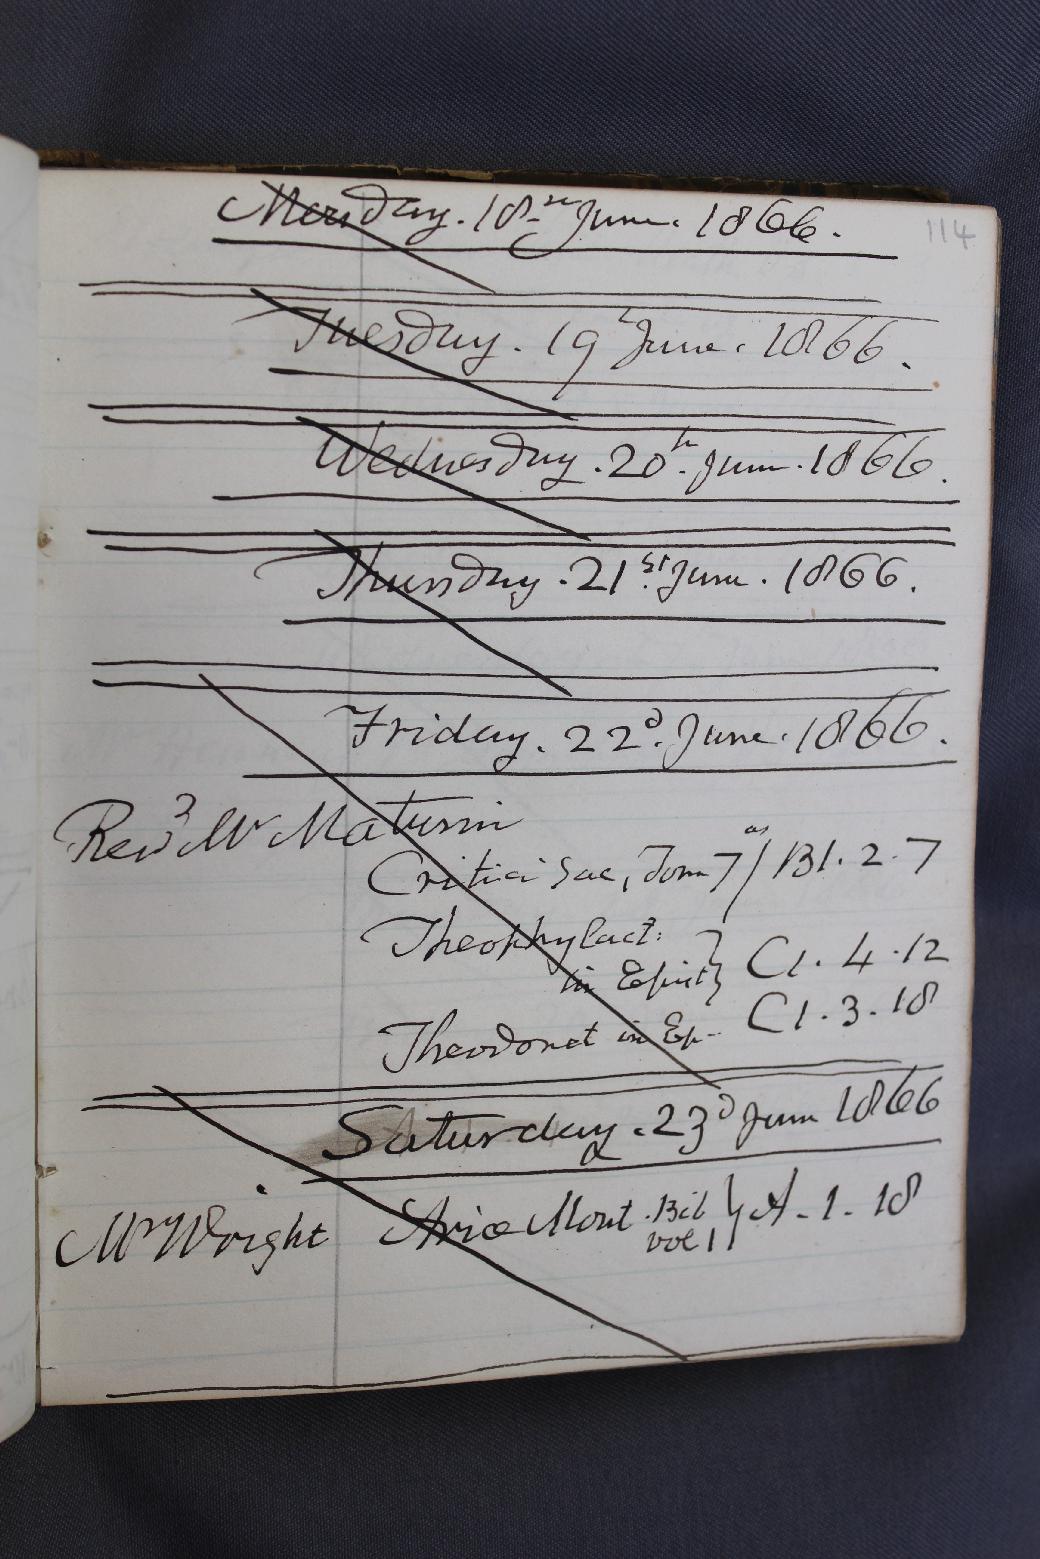 114
Monday. 18th June. 1866.
Tuesday. 19th June. 1866.
Wednesday. 20th June. 1866.
Thursday. 21st June. 1866.
Friday. 22d June. 1866.
Revd Mr Maturin
Critici Sac, Tom 7 / B1. 2. 7
Theophylact:
in Epist } C1. 4. 12
Theodoret in Ep. C1. 3. 18
Saturday. 23d June 1866
Mr Wright Aric Mont. Bib } A. 1. 18
vol 1